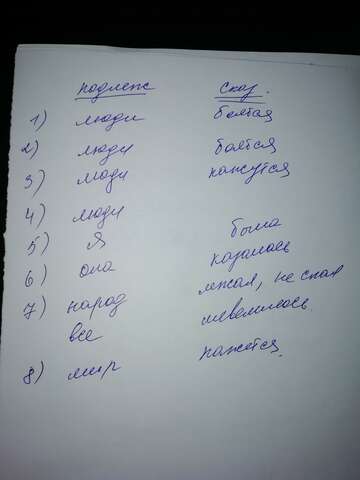 подлеж сказ.
1) люди боятся
2) люди боятся
3) люди кажутся
4) люди
5) я была
6) она казалось
7) народ лежал, не спал
все шевелилось.
8) мир кажется.